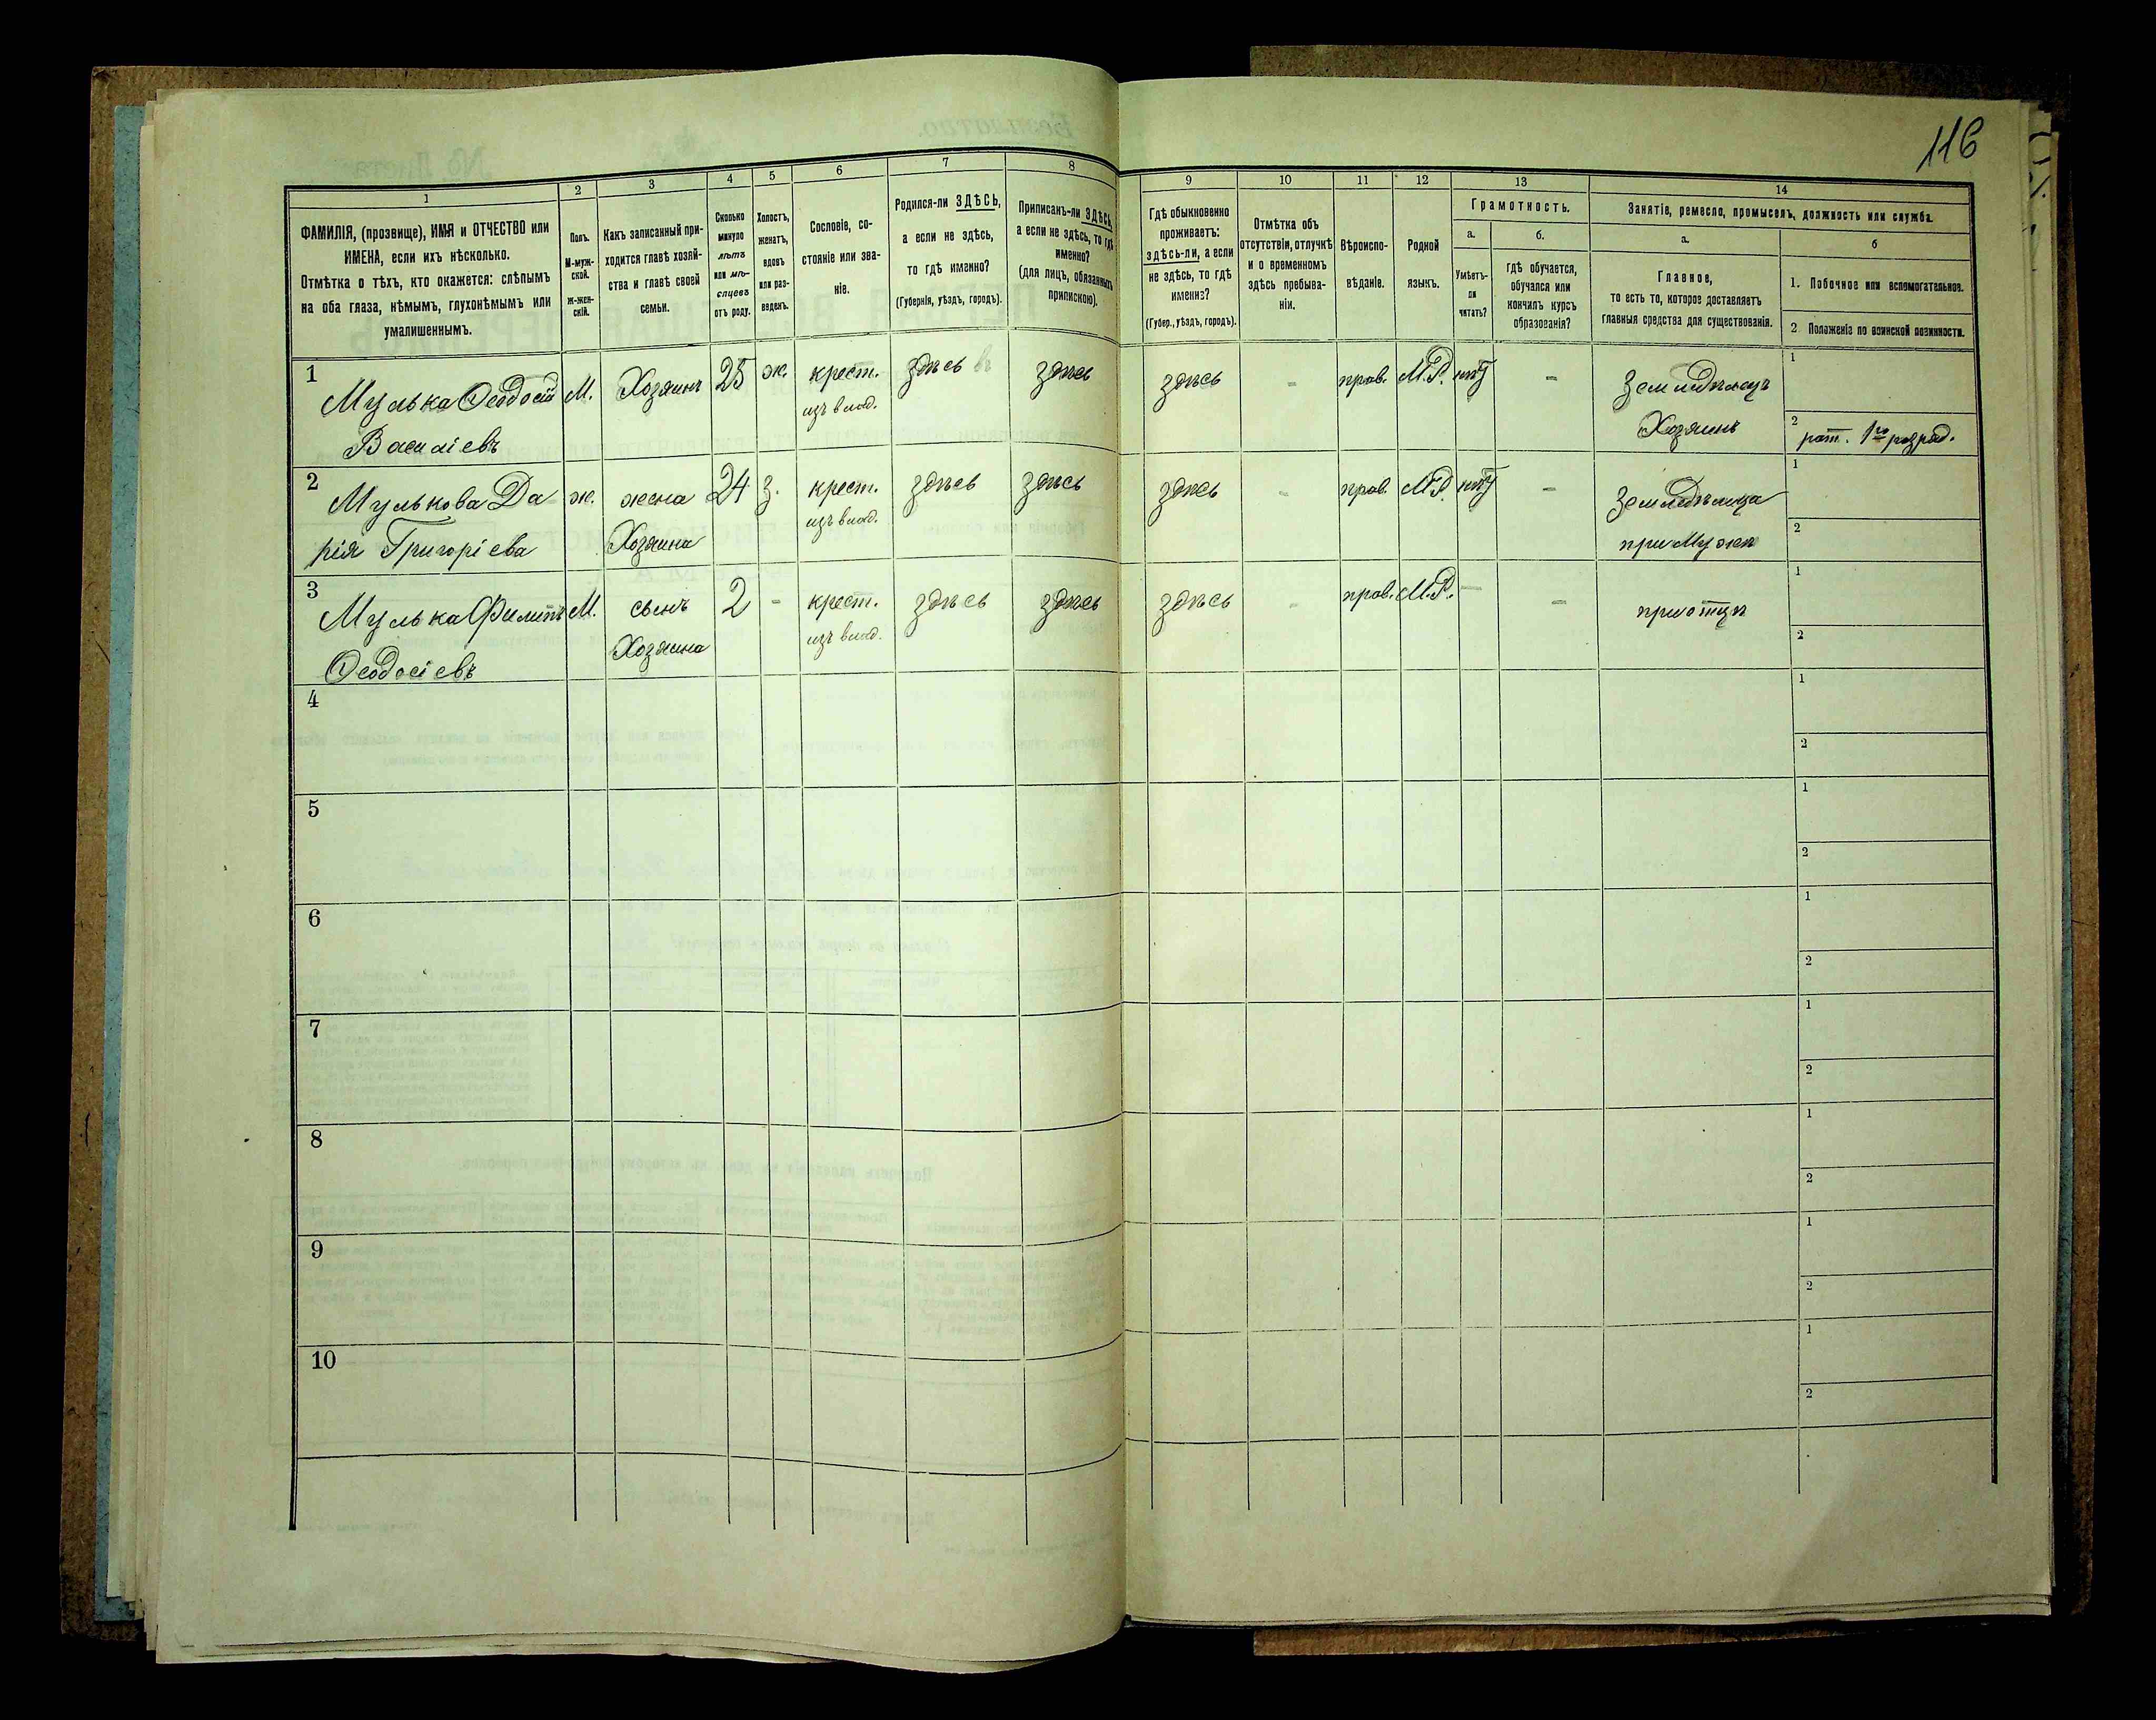 116
1 2 3 4 5 6 7 8 9 10 11 12 13 14
ФАМИЛІЯ, (прозвище), ИМЯ и ОТЧЕСТВО или
ИМЕНА, если ихъ нѣсколько.
Отмѣтка о тѣхъ, кто окажется: слѣпымъ
на оба глаза, нѣмымъ, глухонѣмымъ или
умалишеннымъ.
Полъ.
М-муж-
ской.
ж-жен-
скій.
Какъ записанный при-
ходится главѣ хозяй-
ства и главѣ своей
семьи.
Сколько
минуло
лѣтъ
или мѣ-
сяцевъ
отъ роду.
Холостъ,
женатъ,
вдовъ
или раз-
веденъ.
Сословіе, со-
стояніе или зва-
ніе.
Родился-ли ЗДѢСЬ,
а если не здѣсь,
то гдѣ именно?
(Губернія, уѣздъ, городъ).
Приписанъ-ли ЗДѢСЬ,
а если не здѣсь, то гдѣ
именно?
(для лицъ, обязанныхъ
припискою).
Гдѣ обыкновенно
проживаетъ:
здѣсь-ли, а если
не здѣсь, то гдѣ
именно?
(Губер., уѣздъ, городъ).
Отмѣтка объ
отсутствіи, отлучкѣ
и о временномъ
здѣсь пребыва-
ніи.
Вѣроиспо-
вѣданіе.
Родной
языкъ.
Грамотность.
а.
Умѣетъ-
ли
читать?
б.
гдѣ обучается,
обучался или
кончилъ курсъ
образованія?
Занятіе, ремесло, промыселъ, должность или служба.
а.
Главное,
то есть то, которое доставляетъ
главныя средства для существованія.
б
1. Побочное или вспомогательное.
2. Положеніе по воинской повинности.
1
Мулька Ѳеодосій М. Хозяинъ 25 ж. крест. здѣсь здѣсь здѣсь - прав. М.Р. нѣтъ - Земледѣлецъ 1
Василіевъ изъ влад. Хозяинъ 2 рат. 1го разряд.
2
Мулькова Да ж. жена 24 з. крест. здѣсь здѣсь здѣсь - прав. М.Р. нѣтъ - Земледѣлица 1
рія Григоріева Хозяина изъ влад. при Мужѣ 2
3
Мулька Филипъ М. сынъ 2 - крест. здѣсь здѣсь здѣсь - прав. М.Р. - - при отцѣ 1
Ѳеодосіевъ Хозяина изъ влад. 2
4 1
2
5 1
2
6 1
2
7 1
2
8 1
2
9 1
2
10 1
2